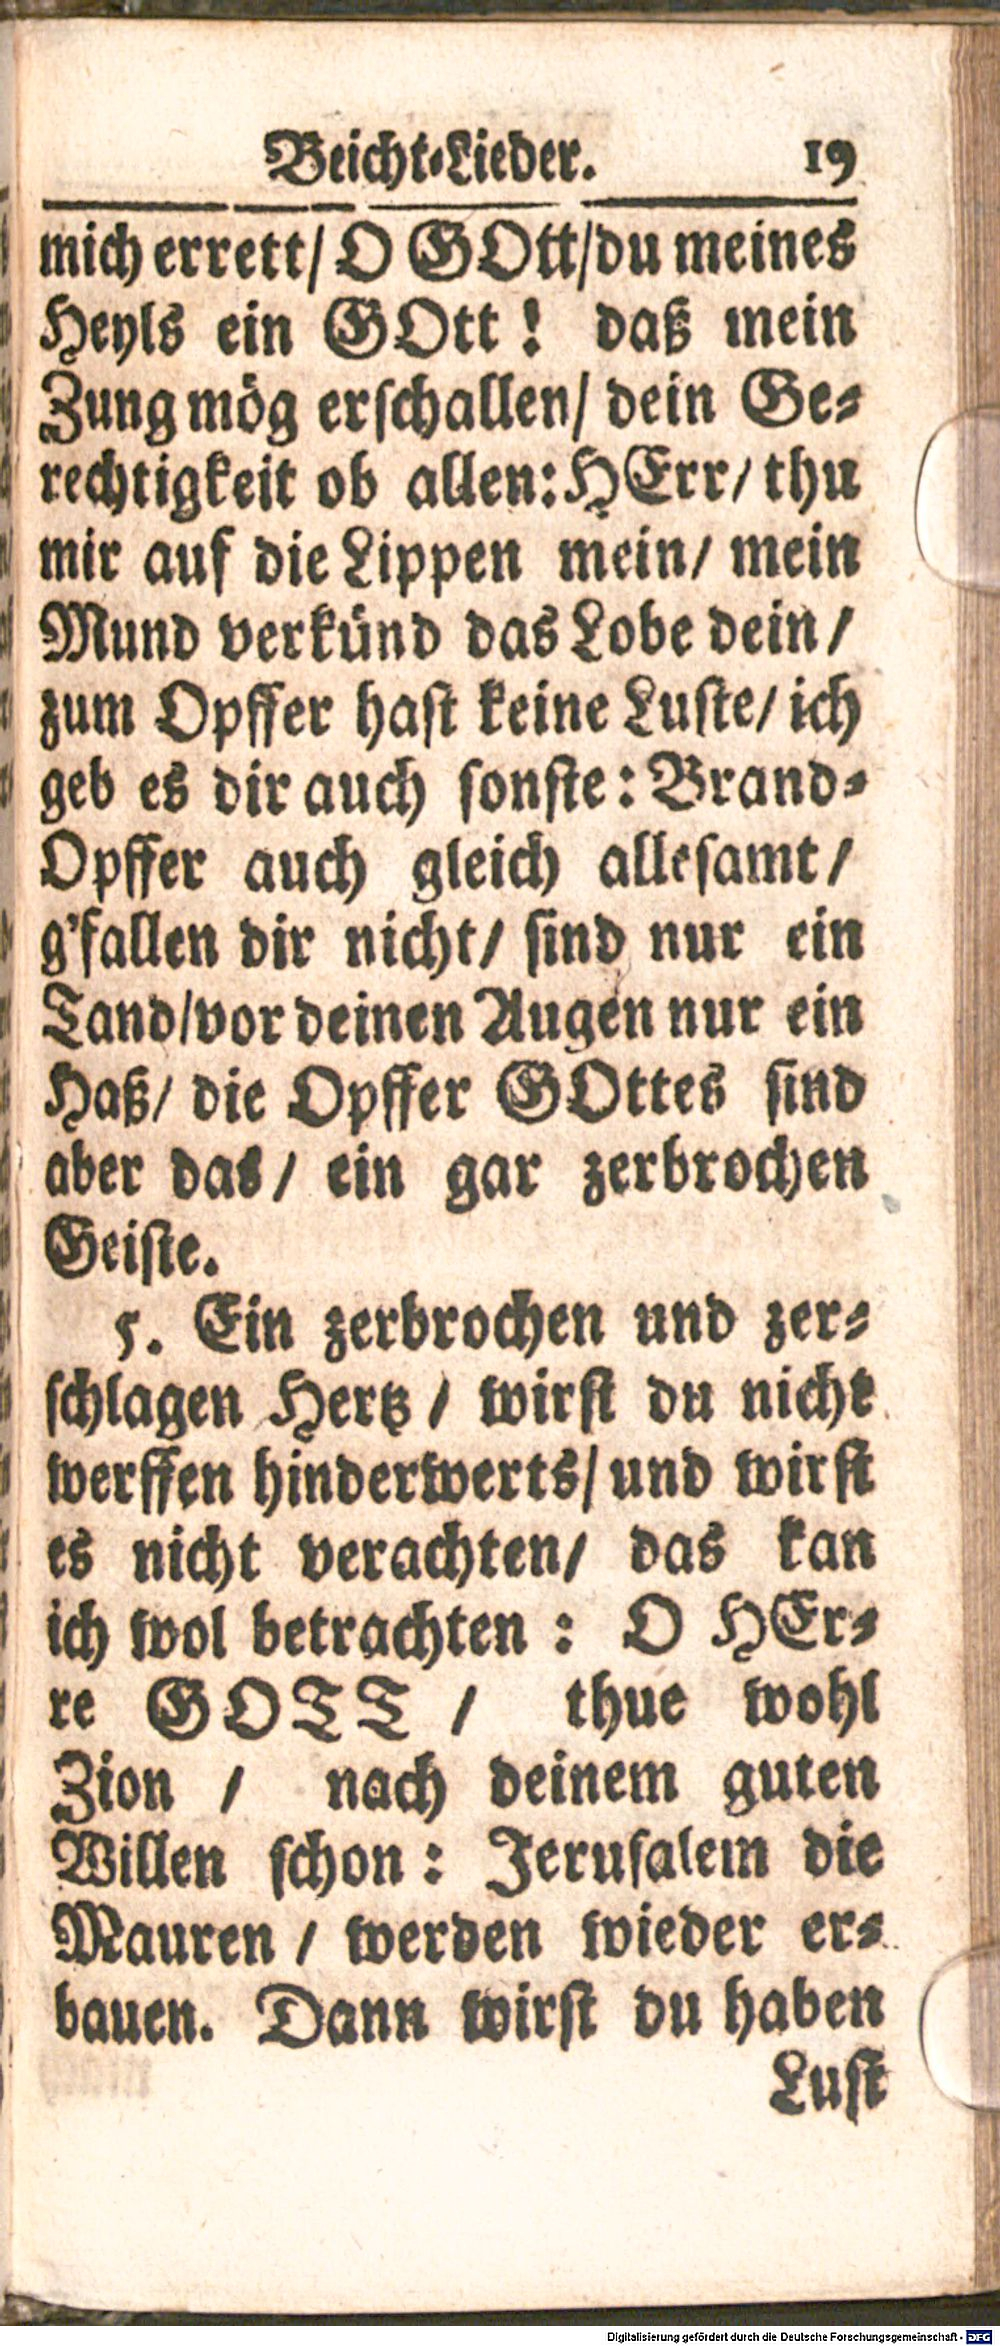 Beicht-Lieder. 19
mich errett/ O GOtt/ du meines
Heyls ein GOtt! daß mein
Zung mög erschallen/ dein Ge-
rechtigkeit ob allen: HErr/ thu
mir auf die Lippen mein/ mein
Mund verkünd das Lobe dein/
zum Opffer hast keine Luste/ ich
geb es dir auch sonste: Brand-
Opffer auch gleich allesamt/
g'fallen dir nicht/ sind nur ein
Tand/ vor deinen Augen nur ein
Haß/ die Opffer GOttes sind
aber das/ ein gar zerbrochen
Geiste.
5. Ein zerbrochen und zer-
schlagen Hertz/ wirst du nicht
werffen hinderwerts/ und wirst
es nicht verachten/ das kan
ich wol betrachten: O HEr-
re GOTT/ thue wohl
Zion/ nach deinem guten
Willen schon: Jerusalem die
Mauren/ werden wieder er-
bauen. Dann wirst du haben
Lust
Digitalisierung gefördert durch die Deutsche Forschungsgemeinschaft - DFG